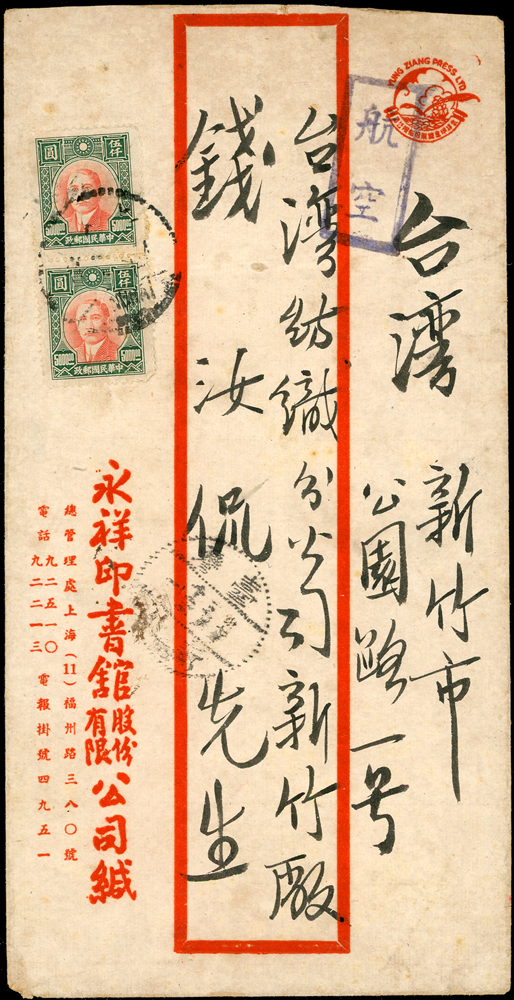 YUNG ZIANG PRESS LTD
航空
台湾 新竹市
公園路一号
台湾紡織分公司新竹廠
錢汝侃先生
伍仟
圓
5000 00
5000 00
中華民國郵政
伍仟
圓
5000 00
5000 00
中華民國郵政
永祥印書館股份有限公司緘
總管理處上海(11)福州路三八〇號
電話 九二五一〇 九二二一三 電報掛號四九五一